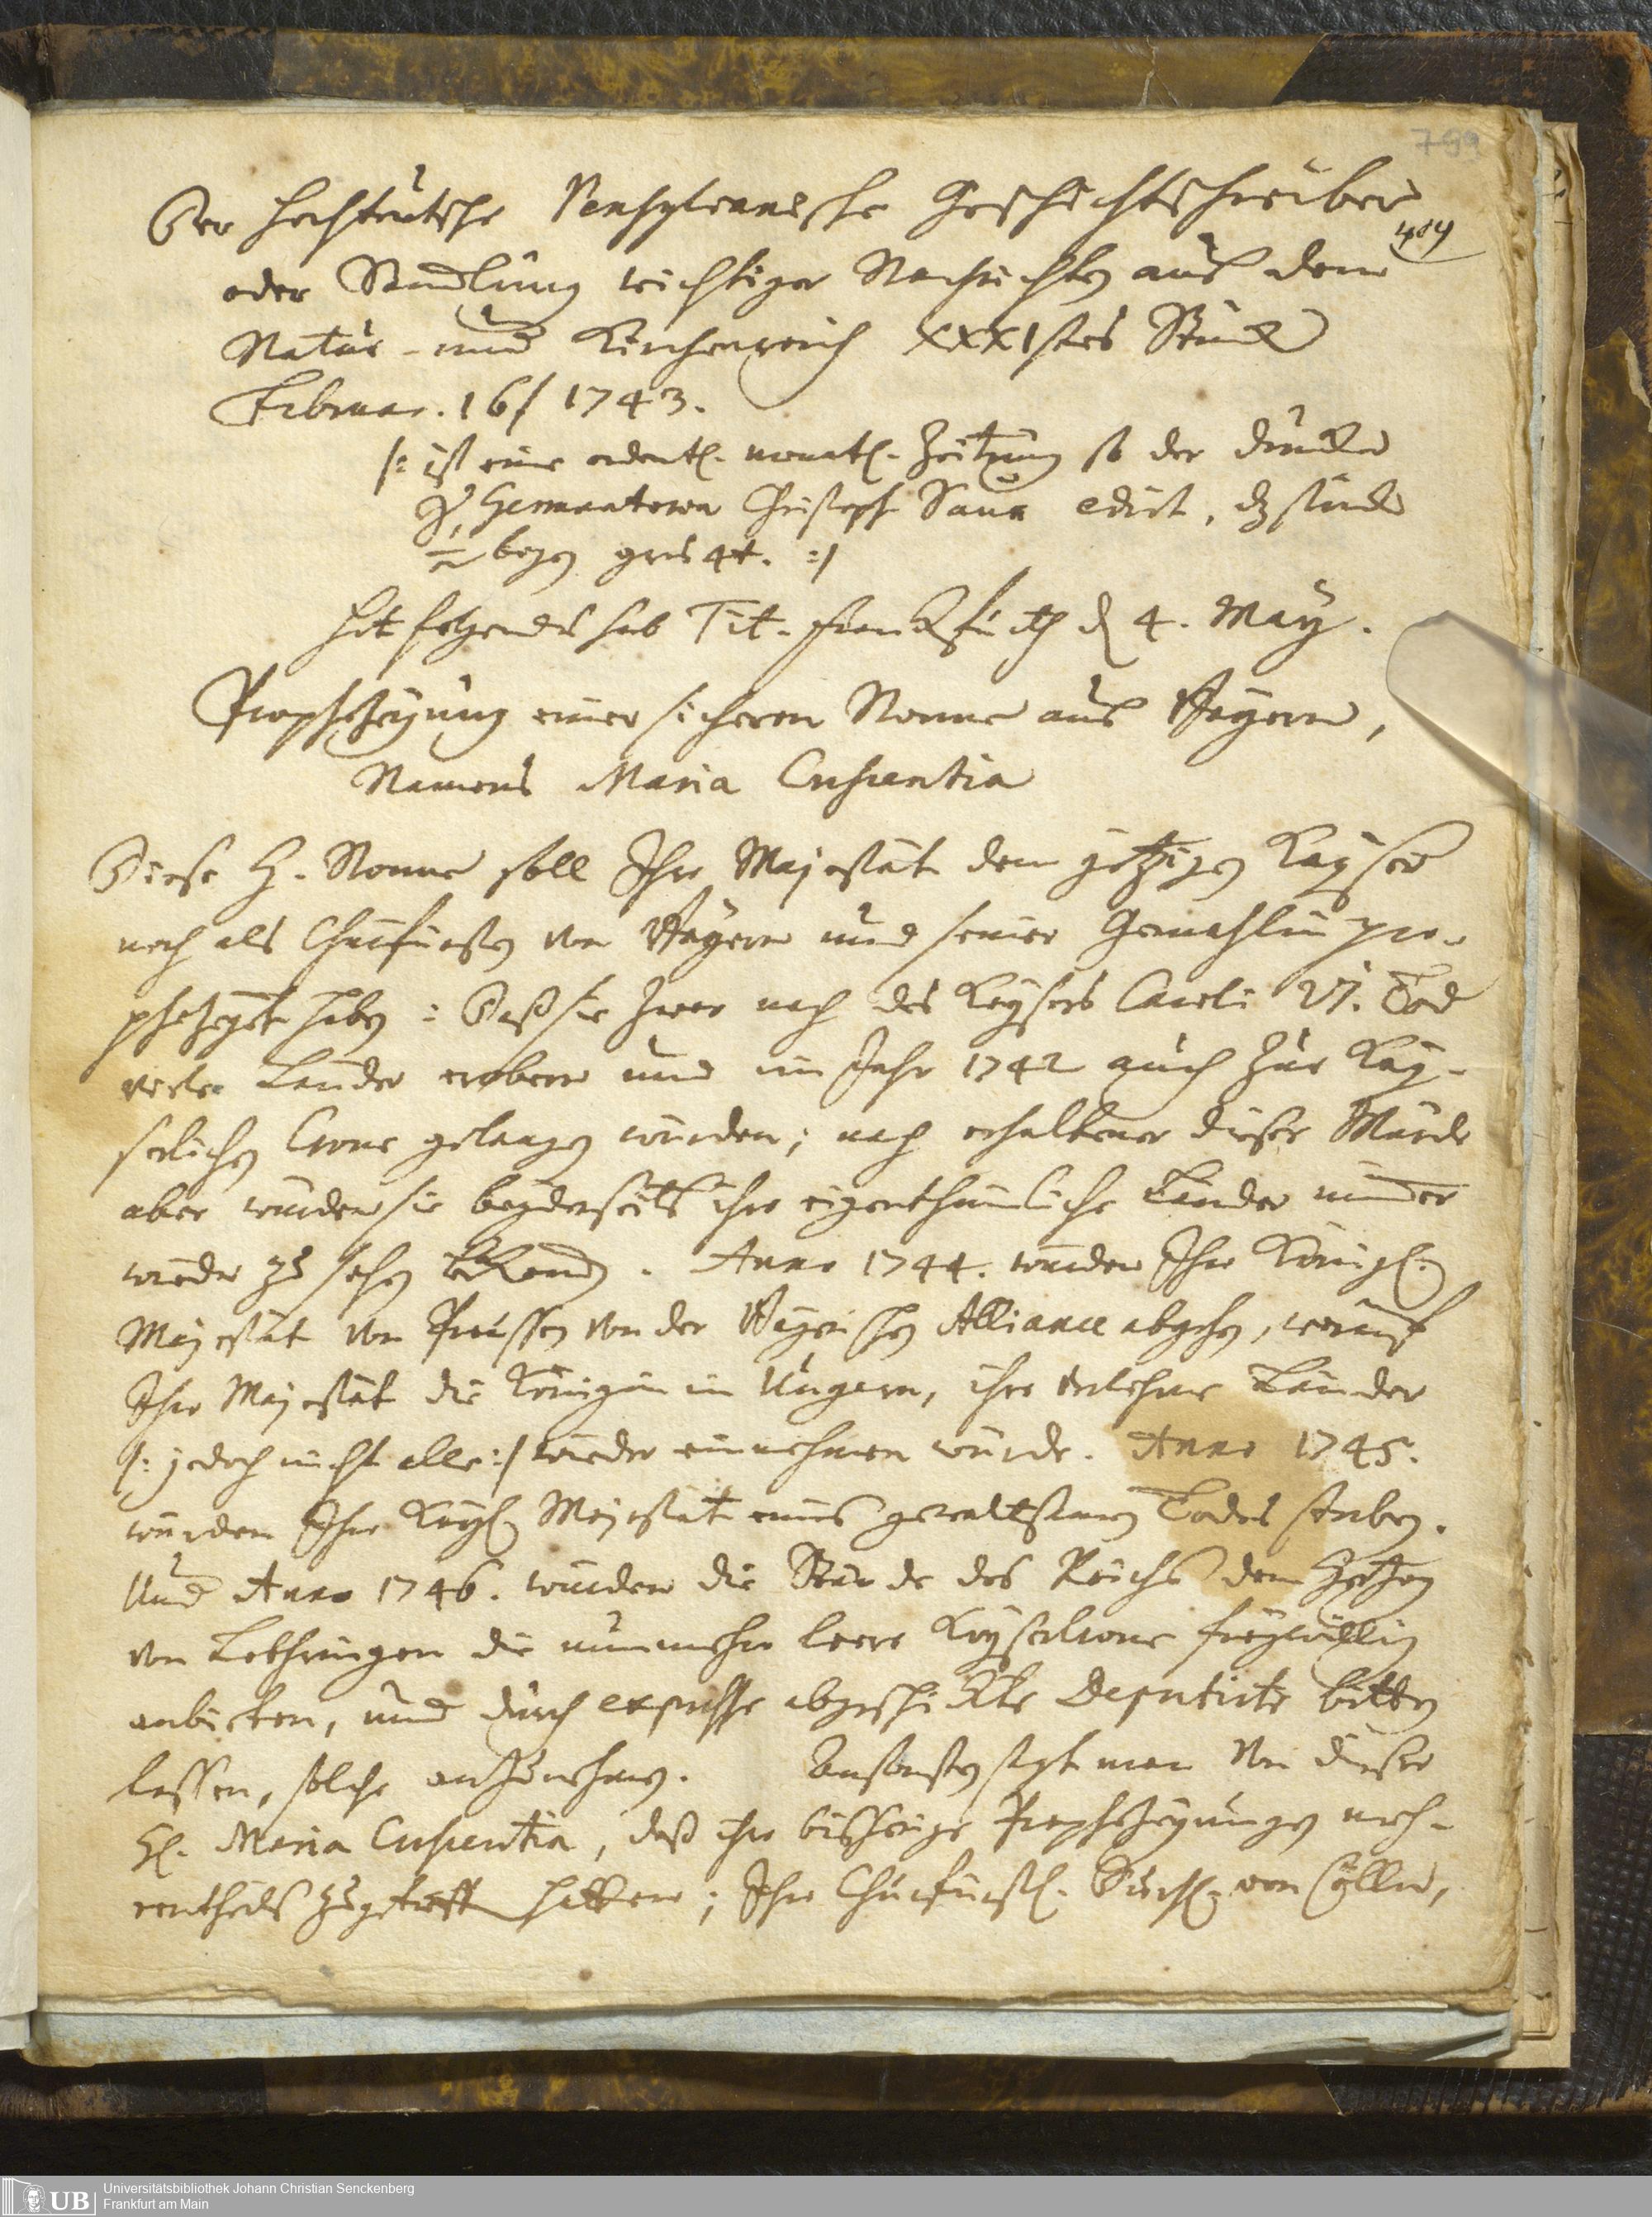 799
Der Hochteutsche Pensylvanische Geschichtschreiber
404
oder Samlung wichtiger Nachrichten aus dem
Natur- und Kirchenreich XXXIstes Stück
Februar. 16/ 1743.
/: ist eine ordentl. monatl. Zeitung so der drucker
Germantown Christoph Saur edirt, dz stück
bogen gros 4t. :/
hat folgendes sub Tit. Franckfurth d 4. May.
Prophezeyung einer sicheren Nonne aus Bayern,
Namens Maria Crescentia
Diese H. Nonne soll Ihro Majestät dem jetzigen Kayser
noch als Churfürsten von Bayern und seiner Gemahlin pro-
phezeyet haben: Daß sie zwar nach des Kaysers Caroli VI. Tod
viele Länder erobern und im Jahr 1742 auch zur Kay-
serlichen Crone gelangen würden; nach erhaltener dieser Würde
aber würden sie beyderseits ihre eigenthümliche Länder nimmer
wieder zu sehen bekommen. Anno 1744. würden Ihro Königl.
Majestät von Preussen von der Bayrischen Alliance abgehen, worauf
Ihro Majestät die Königin in Ungarn, ihre verlohrne Länder
/: jedoch nicht alle :/ wieder einnehmen würde. Anno 1745.
würden Ihro Kayl. Majestät eines gewaltsamen Todes sterben.
Und Anno 1746. würden die Stände des Reichs dem Hertzog
von Lothringen die nunmehro leere Kayserkrone freywillig
anbieten, und durch expresse abgeschickte Deputirte bitten
lassen, solche anzunehmen. Ansonsten sagt man von dieser
Hl. Maria Crescentia, daß ihre bisherige Prophezeyungen meh-
rentheils zugetroffen hätten; Ihro Churfürstl. Durchl. von Cölln,
Universitätsbibliothek Johann Christian Senckenberg
Frankfurt am Main
UB